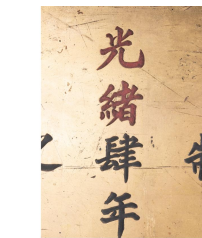 光緒肆年